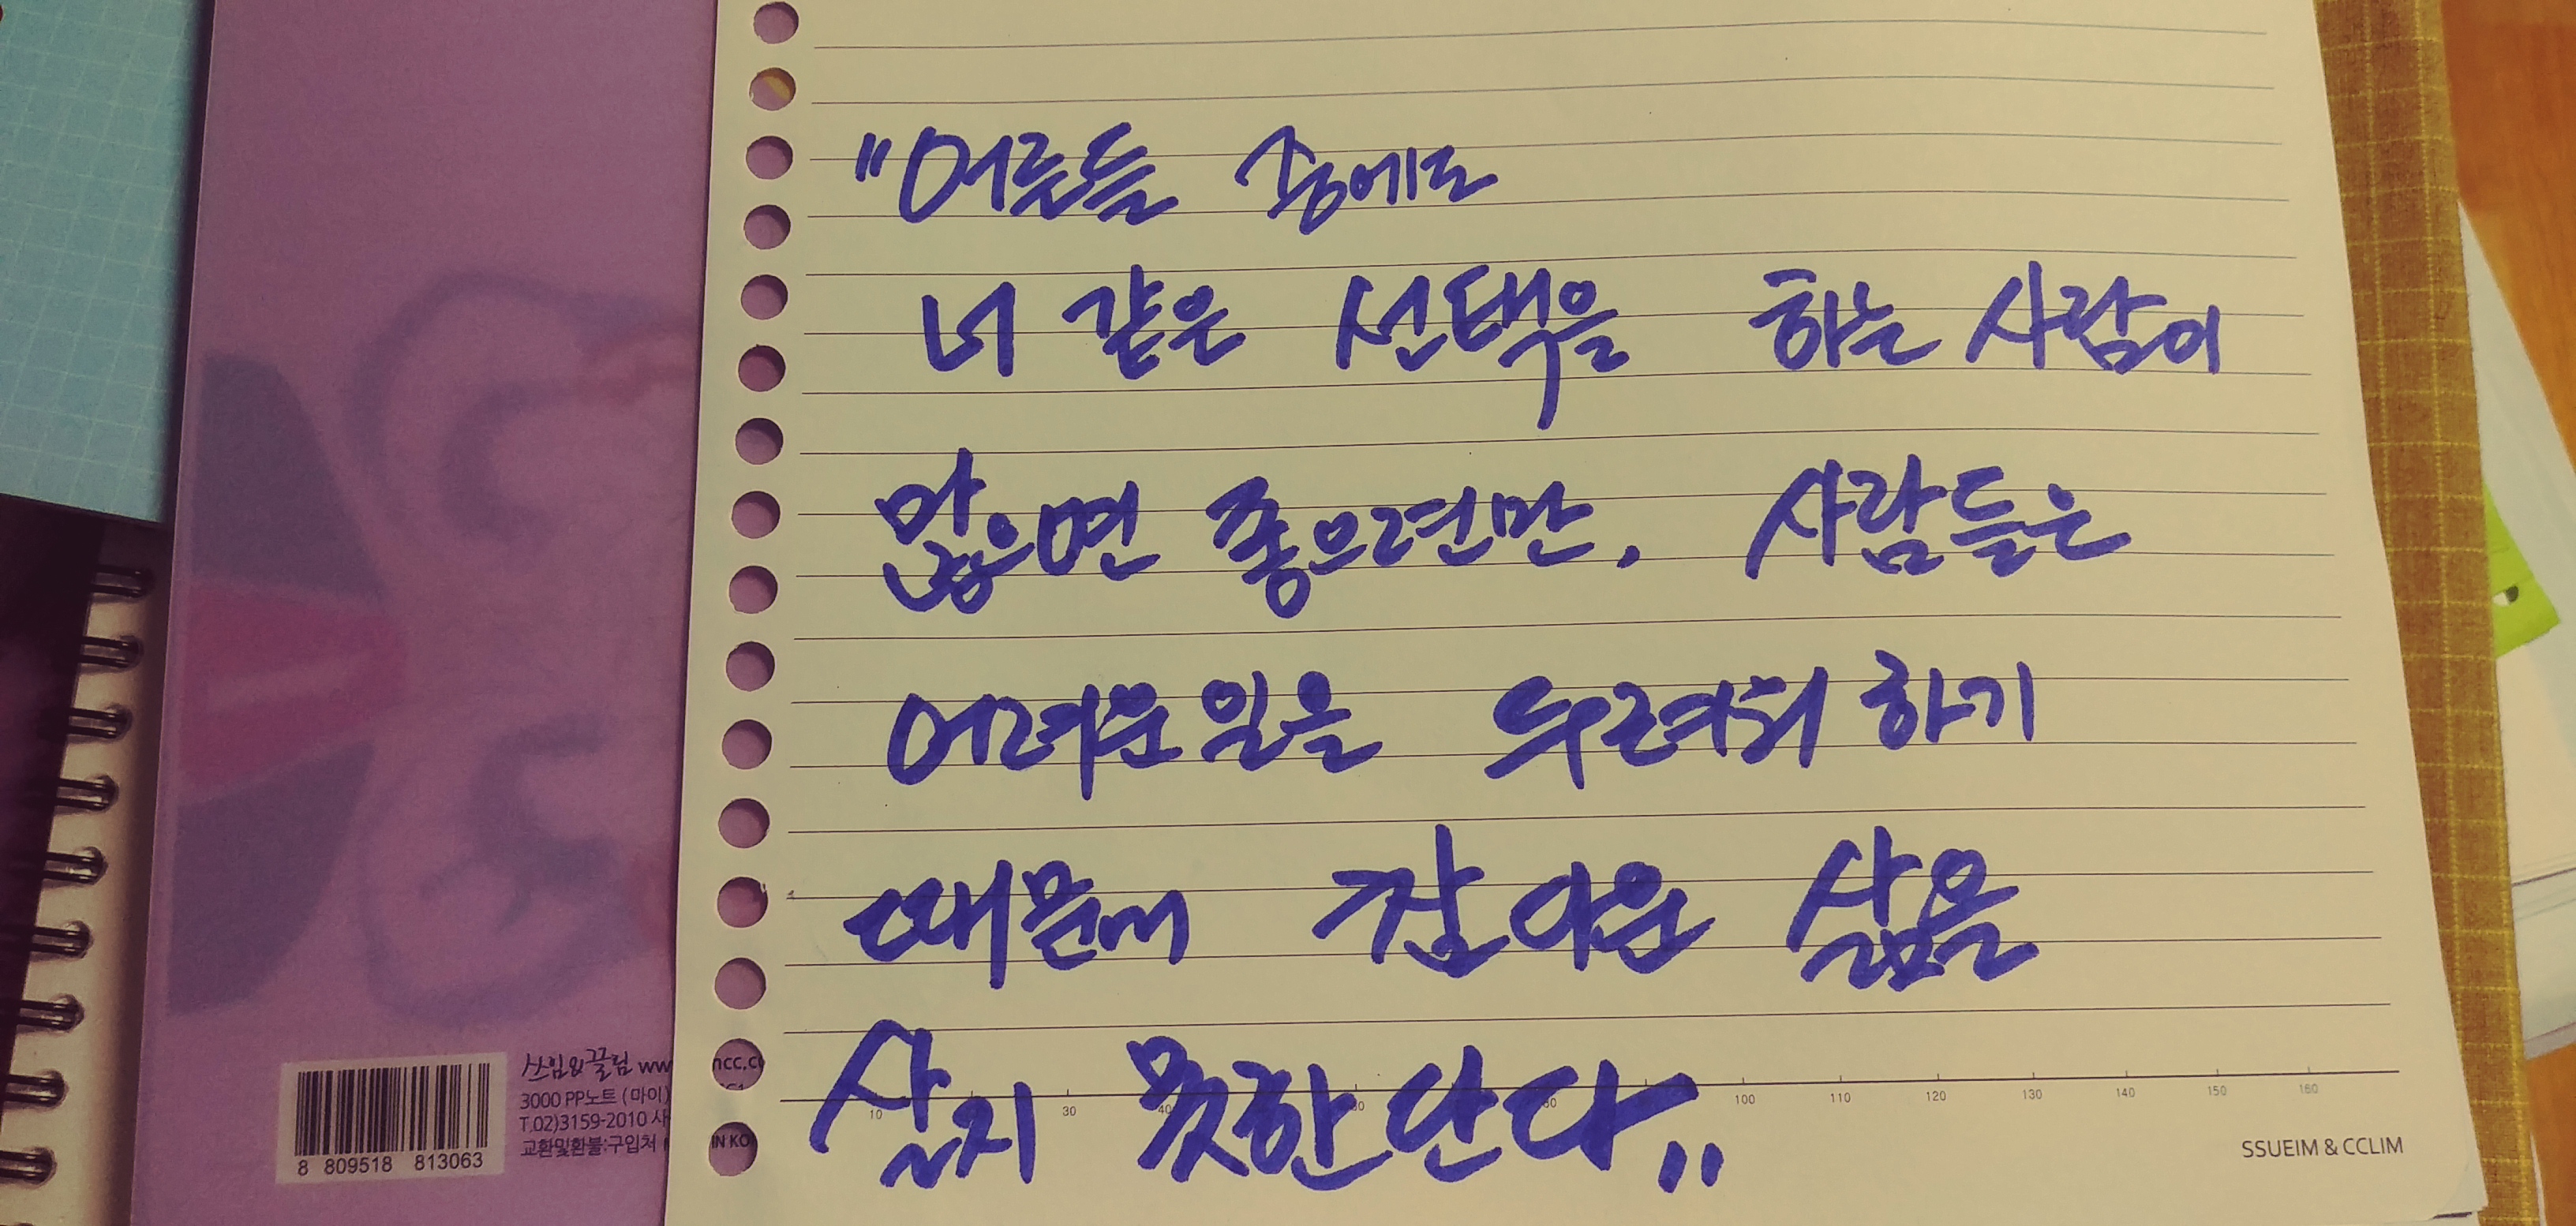 "어른들 중에도
너 같은 선택을 하는 사람이
많으면 좋으련만. 사람들은
어려운 일을 두려워 하기
때문에 값어운 삶을
살지 못한단다"
쓰임&끌림 ww
3000 PP노트 (마이)
T.02)3159-2010 사
교환및환불:구입처
8 809518 813063
ncc.c
IN KO
10 30 40 100 110 120 130 140 150 160
SSUEIM & CCLIM